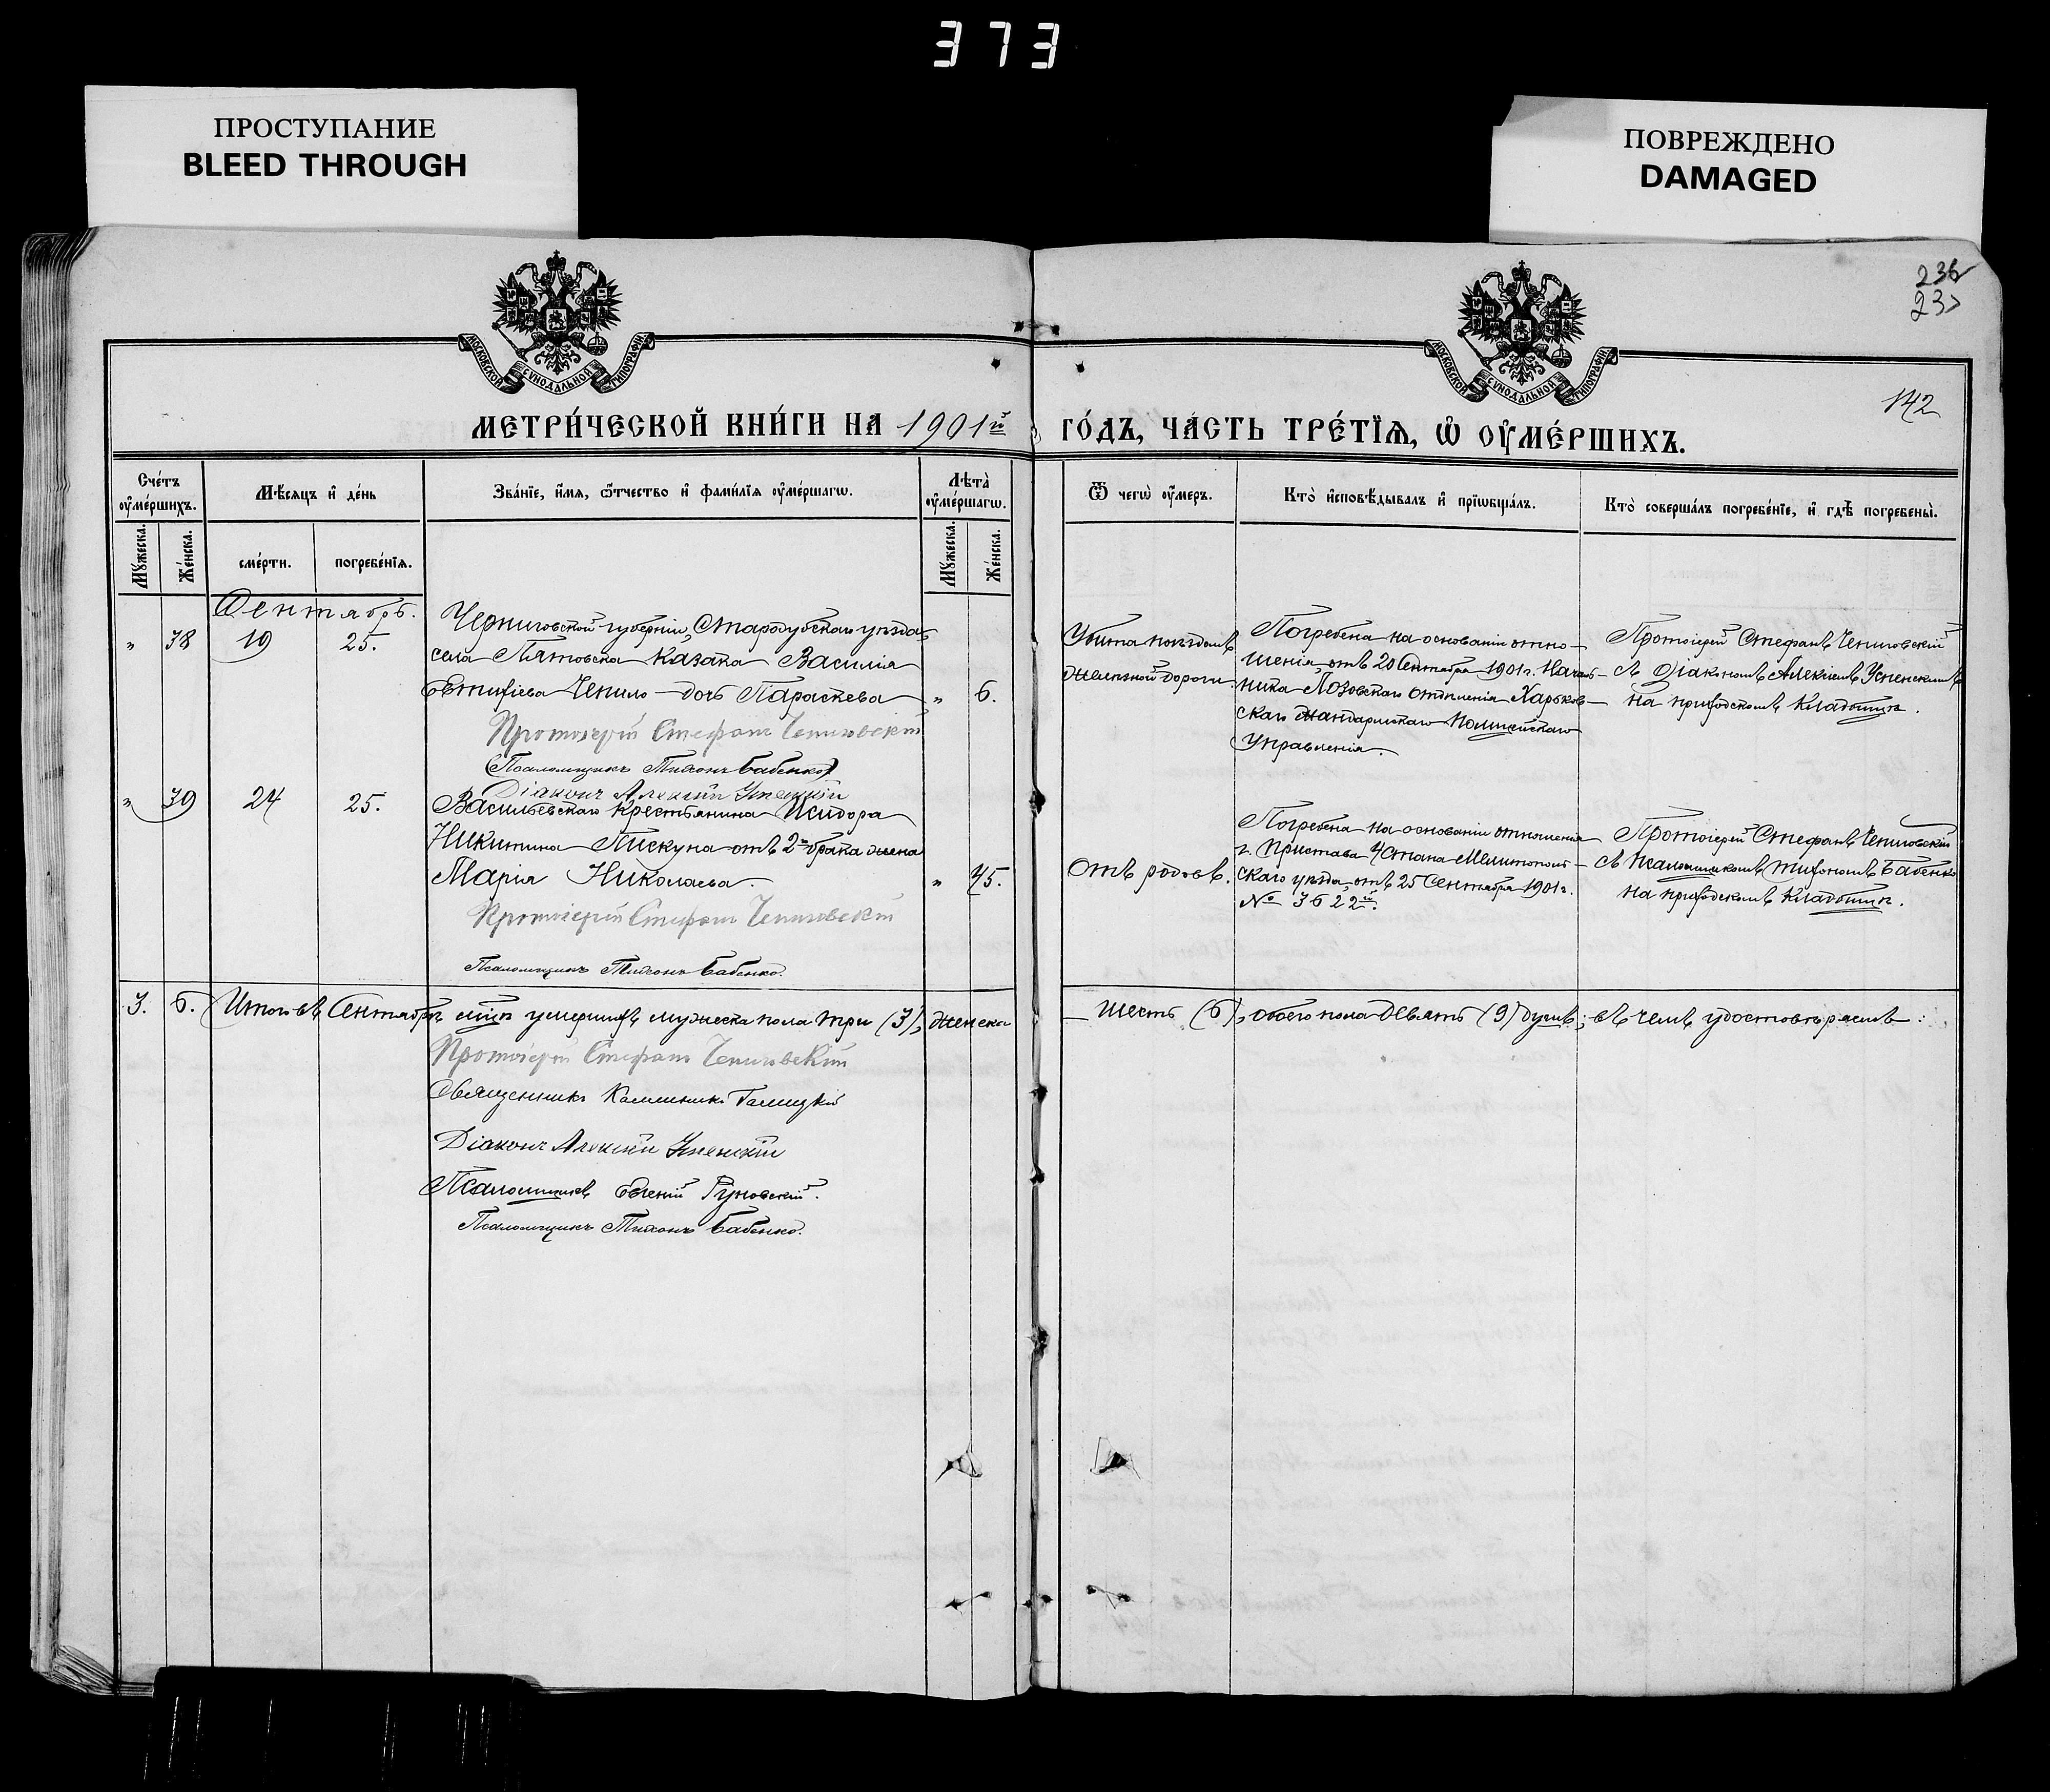 373
ПРОСТУПАНИЕ
BLEED THROUGH
ПОВРЕЖДЕНО
DAMAGED
236
237
142
МОСКОВСКОЙ СѴНОДАЛЬНОЙ ТИПОГРАФІИ
МОСКОВСКОЙ СѴНОДАЛЬНОЙ ТИПОГРАФІИ
МЕТРИ́ЧЕСКОЙ КНИ́ГИ НА 1901й ГО́ДЪ, ЧА́СТЬ ТРЕ́ТЇѦ, Ѡ҆ ОУ҆МЕ́РШИХЪ.
Сче́тъ оу҆ме́ршихъ.
Мѣ́сяцъ и҆ де́нь
Зва́нїе, и҆́мѧ, ѻ҆́тчество и҆ фами́лїѧ оу҆ме́ршагѡ.
Лѣта̀ оу҆ме́ршагѡ.
Ѿ чегѡ̀ оу҆́меръ.
Кто̀ и҆сповѣ́дывалъ и҆ прїѡбща́лъ.
Кто̀ соверша́лъ погребе́нїе, и҆ гдѣ̀ погребены̀.
Мꙋ́жеска.
Же́нска.
сме́рти.
погребе́нїѧ.
Мꙋ́жеска.
Же́нска.
Сентябрь.
" 38 19 25.
Черниговской губерніи, Стародубскаго уѣзда,
села Пятовска казака Василія
Евтихіева Чепило дочь Параскева " 6.
Протоіерей Стефанъ Чепиговскій
Псаломщикъ Тихонъ Бабенко
Діаконъ Алексій Успенскій
Убита поѣздомъ
желѣзной дороги.
Погребена на основаніи отно-
шенія, отъ 20 Сентября 1901 г. Началь-
ника Лозовскаго отдѣленія Харьков-
скаго Жандармскаго Полицейскаго
Управленія.
Протоіерей Стефанъ Чепиговскій
съ Діакономъ Алексіемъ Успенскимъ
на приходскомъ кладбищѣ.
" 39 24 25.
Васильевскаго крестьянина Исидора
Никитина Пискуна отъ 2го брака жена
Марія Николаева. " 45.
Протоіерей Стефанъ Чепиговскій
Псаломщикъ Тихонъ Бабенко.
Отъ родовъ.
Погребена на основаніи отношенія
г. Пристава 4 Стана Мелитополь-
скаго уѣзда, отъ 25 Сентября 1901 г.
№ 3622й.
Протоіерей Стефанъ Чепиговскій
съ Псаломщикомъ Тихономъ Бабенко
на приходскомъ кладбищѣ.
3. 6. Итого въ Сентябрѣ мцѣ умершихъ мужеска пола три (3), женска
шесть (6), обоего пола девять (9) душъ; въ чемъ удостовѣряемъ:
Протоіерей Стефанъ Чепиговскій
Священникъ Галицкій
Діаконъ Алексій Успенскій
Псаломщикъ Евгеній Руновскій.
Псаломщикъ Тихонъ Бабенко.